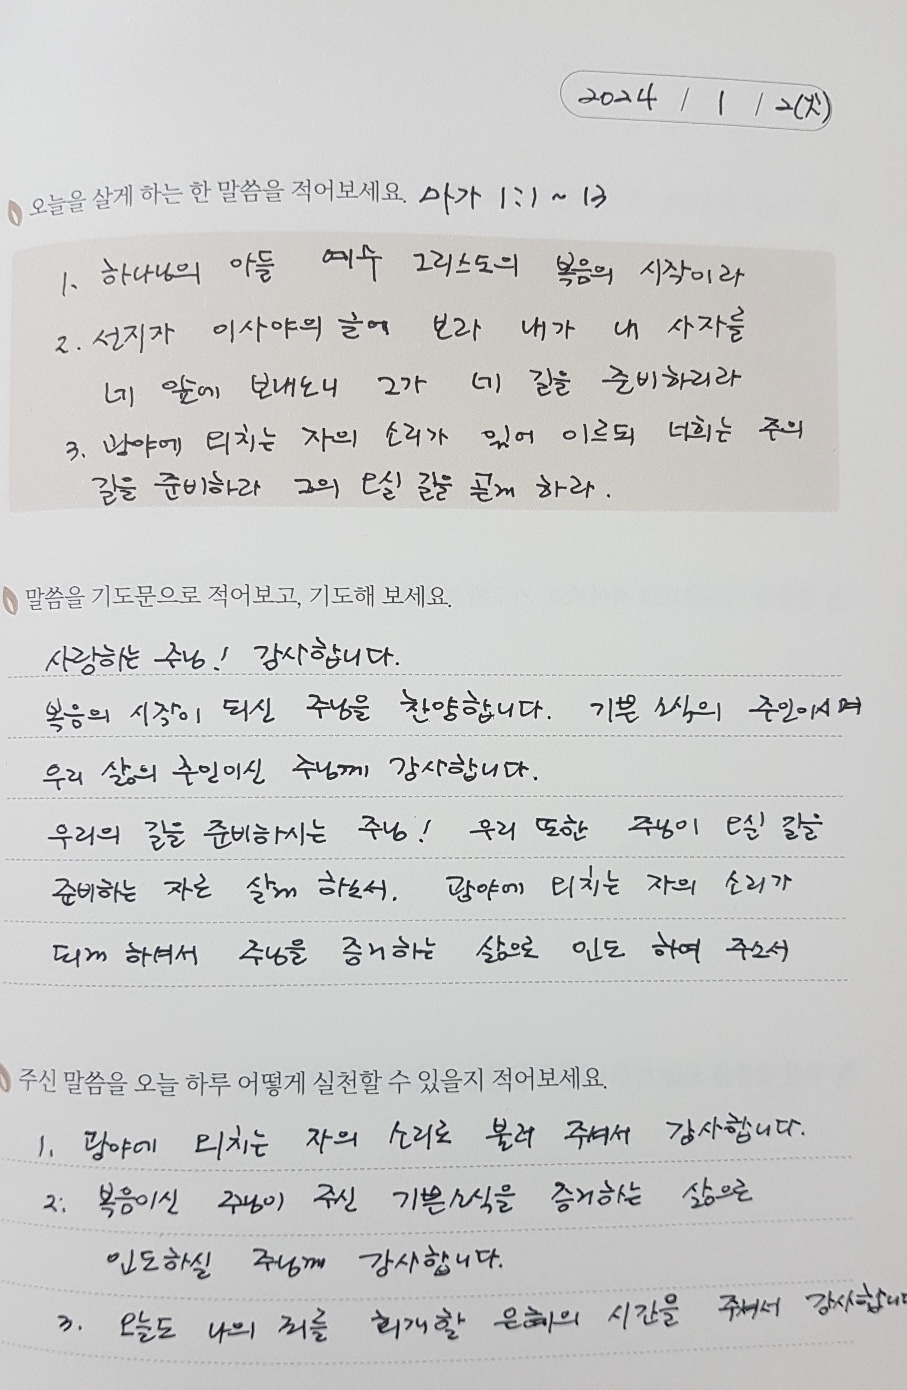 2024 / 1 / 2(火)
오늘을 살게 하는 한 말씀을 적어보세요. 마가 1:1 ~ 13
1. 하나님의 아들 예수 그리스도의 복음의 시작이라
2. 선지자 이사야의 글에 보라 내가 내 사자를
네 앞에 보내노니 그가 네 길을 준비하리라
3. 광야에 외치는 자의 소리가 있어 이르되 너희는 주의
길을 준비하라 그의 오실 길을 곧게 하라.
말씀을 기도문으로 적어보고, 기도해 보세요.
사랑하는 주님! 감사합니다.
복음의 시작이 되신 주님을 찬양합니다. 기쁜 소식의 주인이시며
우리 삶의 주인이신 주님께 감사합니다.
우리의 길을 준비하시는 주님! 우리 또한 주님이 오실 길을
준비하는 자로 살게 하소서. 광야에 외치는 자의 소리가
되게 하셔서 주님을 증거하는 삶으로 인도 하여 주소서
주신 말씀을 오늘 하루 어떻게 실천할 수 있을지 적어보세요.
1. 광야에 외치는 자의 소리로 불러 주셔서 감사합니다.
2. 복음이신 주님이 주신 기쁜소식을 증거하는 삶으로
인도하실 주님께 감사합니다.
3. 오늘도 나의 죄를 회개할 은혜의 시간을 주셔서 감사합니다